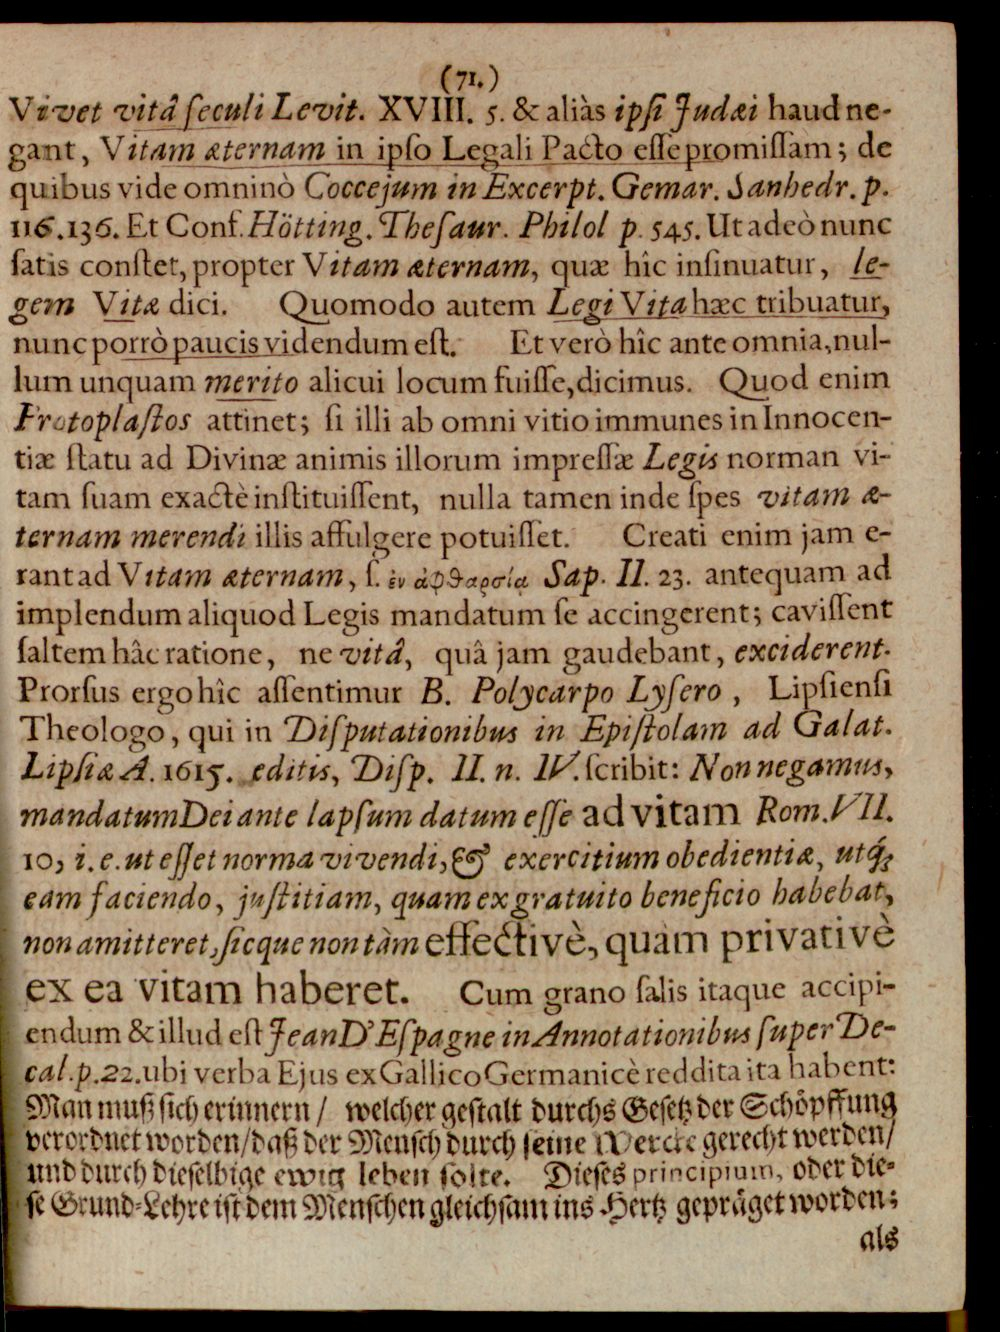 (71.)
Vivet vitâ ſeculi Levit. XVIII. 5. & aliàs ipſi Judæi haud ne-
gant, Vitam æternam in ipſo Legali Pacto eſſe promiſſam; de
quibus vide omninò Coccejum in Excerpt. Gemar. Sanhedr. p.
116. 136. Et Conf. Hötting. Theſaur. Philol p. 545. Ut adeò nunc
ſatis conſtet, propter Vitam æternam, quæ hîc inſinuatur, le-
gem Vitæ dici. Quomodo autem Legi Vita hæc tribuatur,
nunc porrò paucis videndum eſt. Et verò hîc ante omnia, nul-
lum unquam merito alicui locum fuiſſe, dicimus. Quod enim
Protoplaſtos attinet; ſi illi ab omni vitio immunes in Innocen-
tiæ ſtatu ad Divinæ animis illorum impreſſæ Legis norman vi-
tam ſuam exactè inſtituiſſent, nulla tamen inde ſpes vitam æ-
ternam merendi illis affulgere potuiſſet. Creati enim jam e-
rant ad Vitam æternam, ſ. ἐν ἀφθαρσίᾳ Sap. II. 23. antequam ad
implendum aliquod Legis mandatum ſe accingerent; caviſſent
ſaltem hâc ratione, ne vitâ, quâ jam gaudebant, exciderent.
Prorſus ergo hîc aſſentimur B. Polycarpo Lyſero, Lipſienſi
Theologo, qui in Diſputationibus in Epiſtolam ad Galat.
Lipſiæ A. 1615. editis, Diſp. II. n. IV. ſcribit: Non negamus,
mandatum Dei ante lapſum datum eſſe ad vitam Rom. VII.
10, i. e. ut eſſet norma vivendi, & exercitium obedientiæ, utq́;
eam faciendo, juſtitiam, quam ex gratuito beneficio habebat,
non amitteret, ſicque non tàm effectivè, quam privativè
ex ea vitam haberet. Cum grano ſalis itaque accipi-
endum & illud eſt Jean D'Eſpagne in Annotationibus ſuper De-
cal. p. 22. ubi verba Ejus ex Gallico Germanicè reddita ita habent:
Man muß ſich erinnern / welcher geſtalt durchs Geſetz der Schöpffung
verordnet worden / daß der Menſch durch ſeine Wercke gerecht werden /
und durch dieſelbige ewig leben ſolte. Dieſes principium, oder die-
ſe Grund-Lehre iſt dem Menſchen gleichſam ins Hertz gepräget worden;
als